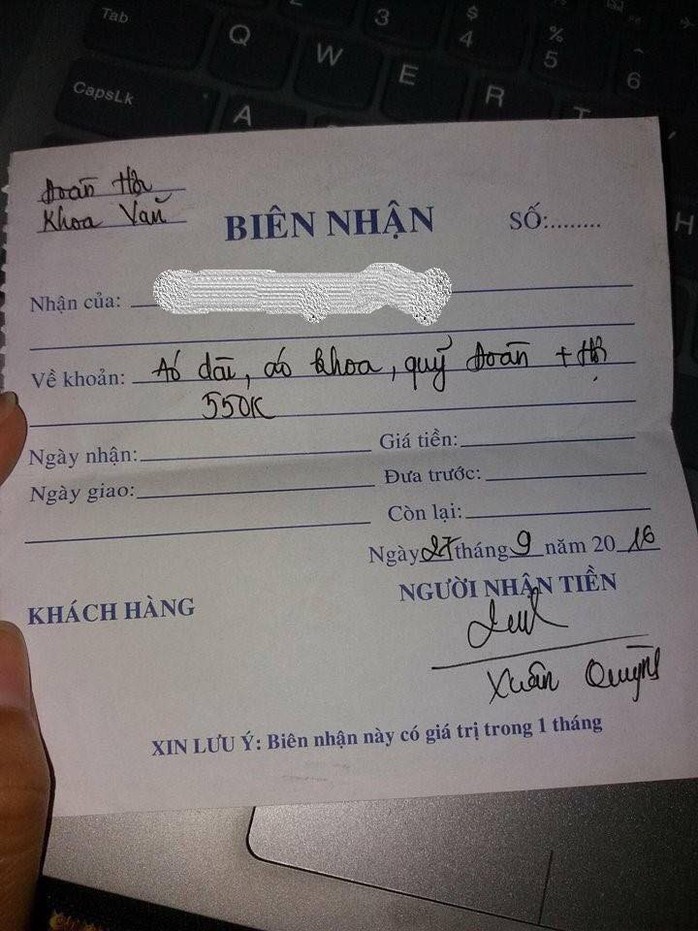 Tab
3
$
4
%
5
^
6
Q
W
E
R
T
CapsLk
A
H
Đoàn Hội
Khoa Văn
BIÊN NHẬN
SỐ:.........
Nhận của:
Về khoản: Áo dài, áo khoa, quỹ Đoàn + Hội
550K
Ngày nhận:
Giá tiền:
Ngày giao:
Đưa trước:
Còn lại:
Ngày 27 tháng 9 năm 2016
KHÁCH HÀNG
NGƯỜI NHẬN TIỀN
Xuân Quỳnh
XIN LƯU Ý: Biên nhận này có giá trị trong 1 tháng